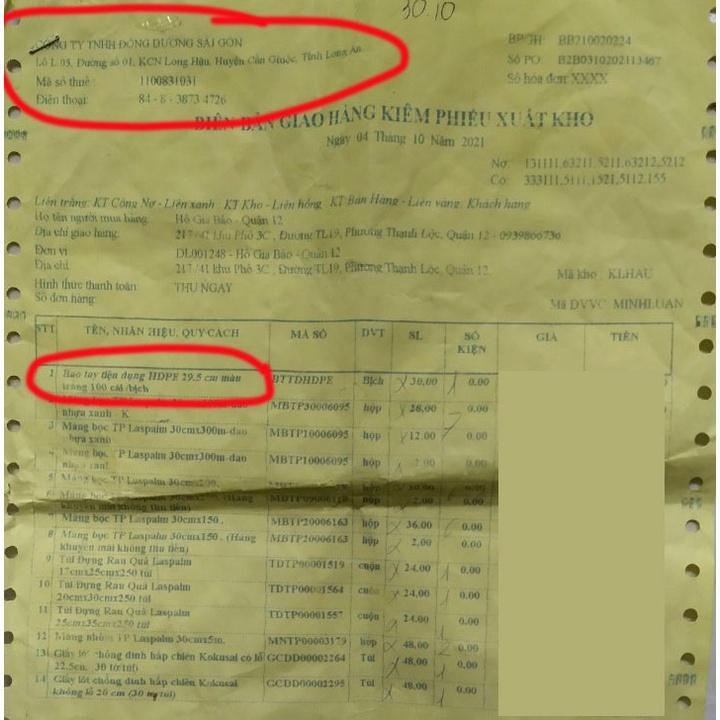 30.10
CÔNG TY TNHH ĐÔNG DƯƠNG SÀI GÒN
Lô L 05, Đường số 01, KCN Long Hậu, Huyện Cần Giuộc, Tỉnh Long An
Mã số thuế: 1100831031
Điện thoại: 84 - 8 - 3873 4726
BB210020224
Số PO: B2B0310202113467
Số hóa đơn: XXXX
BIÊN BẢN GIAO HÀNG KIÊM PHIẾU XUẤT KHO
Ngày 04 Tháng 10 Năm 2021
Nợ: 131111,63211,5211,63212,5212
Có: 333111,5111,1521,5112,155
Liên trắng: KT Công Nợ - Liên xanh: KT Kho - Liên hồng: KT Bán Hàng - Liên vàng: Khách hàng
Họ tên người mua hàng: Hồ Gia Bảo - Quận 12
Địa chỉ giao hàng: 217/41 khu Phố 3C, Đường TL19, Phường Thạnh Lộc, Quận 12 - 0939806736
Đơn vị: DL001248 - Hồ Gia Bảo - Quận 12
Địa chỉ: 217/41 khu Phố 3C, Đường TL19, Phường Thạnh Lộc, Quận 12.
Mã kho: KLHAU
Hình thức thanh toán: THU NGAY
Số đơn hàng:
Mã DVVC: MINHLUAN
STT TÊN, NHÃN HIỆU, QUY CÁCH MÃ SỐ ĐVT SL SỐ KIỆN GIÁ TIỀN
1 Bao tay tiện dụng HDPE 29.5 cm màu trắng 100 cái/bịch BTTDHDPE Bịch 30,00 0.00
MBTP30006095 hộp 28,00 0.00
nhựa xanh - K
3 Màng bọc TP Laspalm 30cmx300m-dao nhựa xanh MBTP10006095 hộp 12.00 0.00
Màng bọc TP Laspalm 30cmx300m-dao MBTP10006095 hộp 0.00
5 Màng bọc TP Laspalm
hộp 2,00 0.00
khuyến mãi không thu tiền)
Màng bọc TP Laspalm 30cmx150. MBTP20006163 hộp 36.00 0.00
8 Màng bọc TP Laspalm 30cmx150. (Hàng khuyến mãi không thu tiền) MBTP20006163 hộp 2,00 0.00
9 Túi Đựng Rau Quả Laspalm 17cmx25cmx250 túi TDTP00001519 cuộn 24.00 0.00
10 Túi Đựng Rau Quả Laspalm 20cmx30cmx250 túi TDTP00001564 cuộn 24.00 0.00
11 Túi Đựng Rau Quả Laspalm 25cmx35cmx250 túi TDTP00001557 cuộn 24.00 0.00
12 Màng nhôm TP Laspalm 30cmx5m. MNTP00003179 hộp 48,00 0.00
13 Giấy lót chống dính hấp chiên Kokusai có lỗ 22.5cm. 30 tờ/túi) GCDD00002264 Túi 48,00 0.00
14 Giấy lót chống dính hấp chiên Kokusai không lỗ 20 cm (30 tờ/túi) GCDD00002295 Túi 48.00 0.00